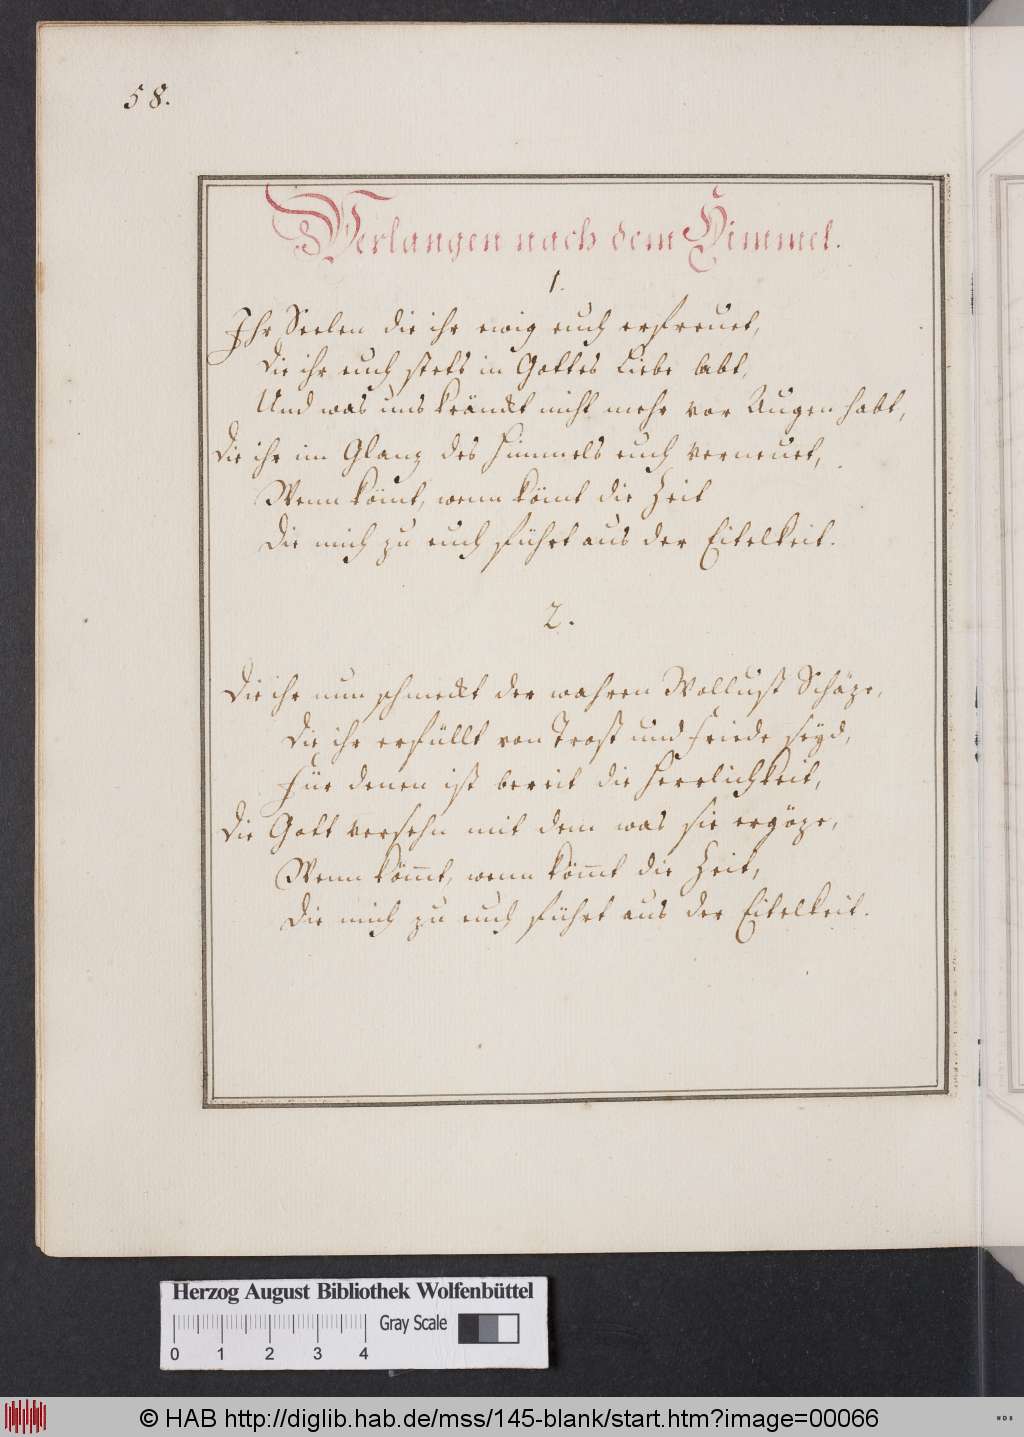 58.
Verlangen nach dem Himmel.
1.
Ihr Seelen die ihr ewig euch erfreuet,
Die ihr euch stets in Gottes Liebe labt,
Und was uns kränckt nicht mehr vor Augen habt,
Die ihr im Glanz des Himmels euch verneuet,
Wenn köm̄t, wenn köm̄t die Zeit
Die mich zu euch führt aus der Eitelkeit.
2.
Die ihr nun schmeckt der wahren Wollust Schäze,
Die ihr erfüllt von Trost und Friede seyd,
Für denen ist bereit die Herrlichkeit,
Die Gott versehn mit dem was sie ergöze,
Wenn köm̄t, wenn köm̄t die Zeit,
Die mich zu euch führt aus der Eitelkeit.
Herzog August Bibliothek Wolfenbüttel
Gray Scale
0 1 2 3 4
© HAB http://diglib.hab.de/mss/145-blank/start.htm?image=00066